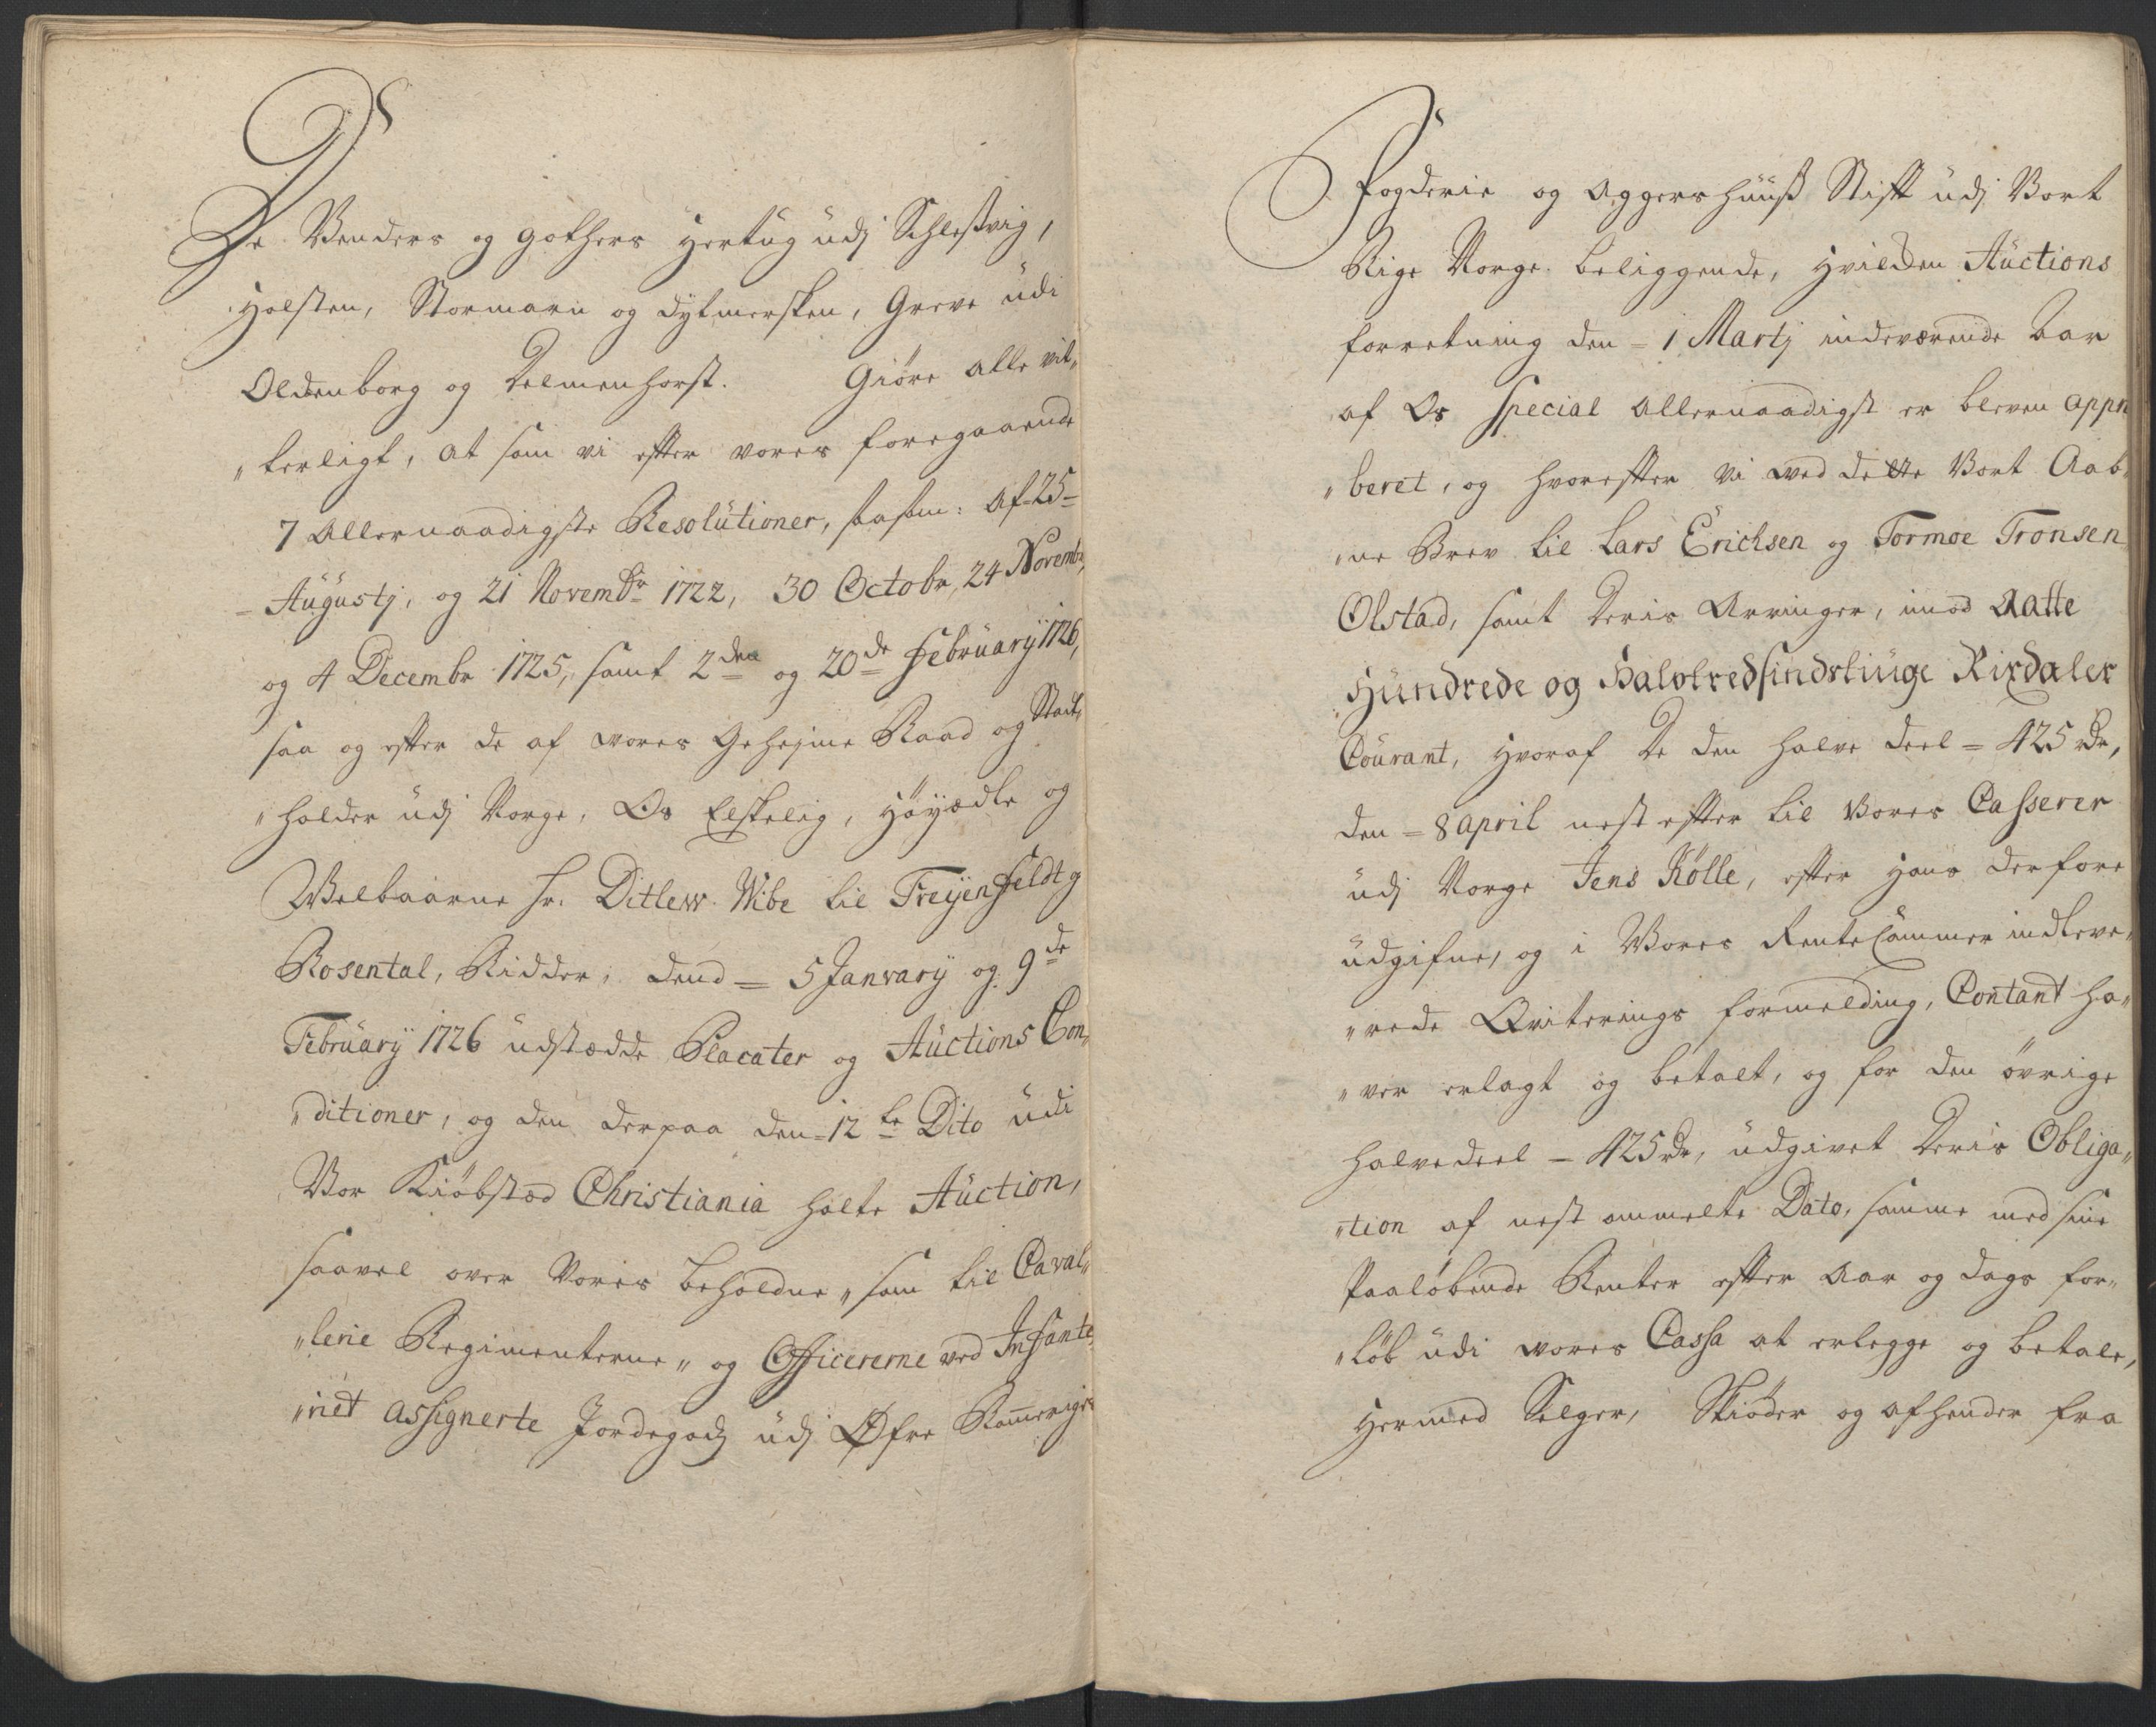 De Venders og gothers Hertug udj Schleßvig,
Holsten, Stormarn og dytmersken, Greve udi
Oldenborg og Delmenhorst. Giöre alle vit„
„terligt, at som vi efter vores foregaaende
7 allernaadigste Resolutioner, saasom: af 25=
= Augustj, og 21 Novembr 1722, 30 Octobr, 24 Novembr,
og 4 Decembr 1725, samt 2den og 20de February 1726,
saa og efter de af vores Geheime Raad og Stadt„
„holder udj Norge, Os Elskelig, Höyædle og
Welbaarne hr. Ditlew Wibe til Freyenfeldt og
Rosental, Ridder, dend = 5 January og 9de
February 1726 udstædde Placater og Auctions Con„
„ditioner, og den derpaa den = 12te Dito udi
Vor Kiöbstæd Christiania holte Auction,
saavel over Vores beholdne, som til Caval„
„lerie Regimenterne, og Officererne ved Infante„
„riet assignerte Jordegodz udj Øfre Rommeriges
Fogderie og Aggershuuß Stift udj Vort
Rige Norge beliggende, hvilcken Auctions
forretning den = 1 Martj indeværende Aar
af Os Special allernaadigst er bleven appro
„beret, og hvorefter vi ved dette Vort Aab„
„ne Brev til Lars Erichsen og Tormoe Tronsen
Olstad, samt deris Arvinger, imod Aatte
Hundrede og Halvtredsindstiuge Rixdaler
Courant, hvoraf de den halve deel = 425 rdr,
den = 8 april nest efter til Vores Casserer
udj Norge Jens Kölle, efter hans derfore
udgifne, og i Vores RenteCammer indleve„
„rede Qviterings formelding, Contant ha„
„ver erlagt og betalt, og for den övrige
halvedeel = 425 rdr, udgivet deris Obliga„
„tion af nest ommelte Dato, samme med sine
Paalöbende Renter efter Aar og dags for„
„löb udi vores Cassa at erlegge og betale,
hermed Selger, Skiöder og afhender fra